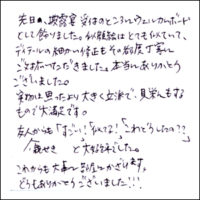 先日、披露宴 受付のところにウェルカムボード
として飾りました。似顔絵はとても似ていて、
ディテールの細かい修正もその都度丁寧に
ご対応いただきました。本当にありがとう
ございました。
実物は思ったより大きく立派で、見栄えもする
もので大満足です。
友人からも「すごい!似てる!」「これどうしたの??」
親せき
と大好評でした。
これからも大事に部屋にかざります。
どうもありがとうございました!!!